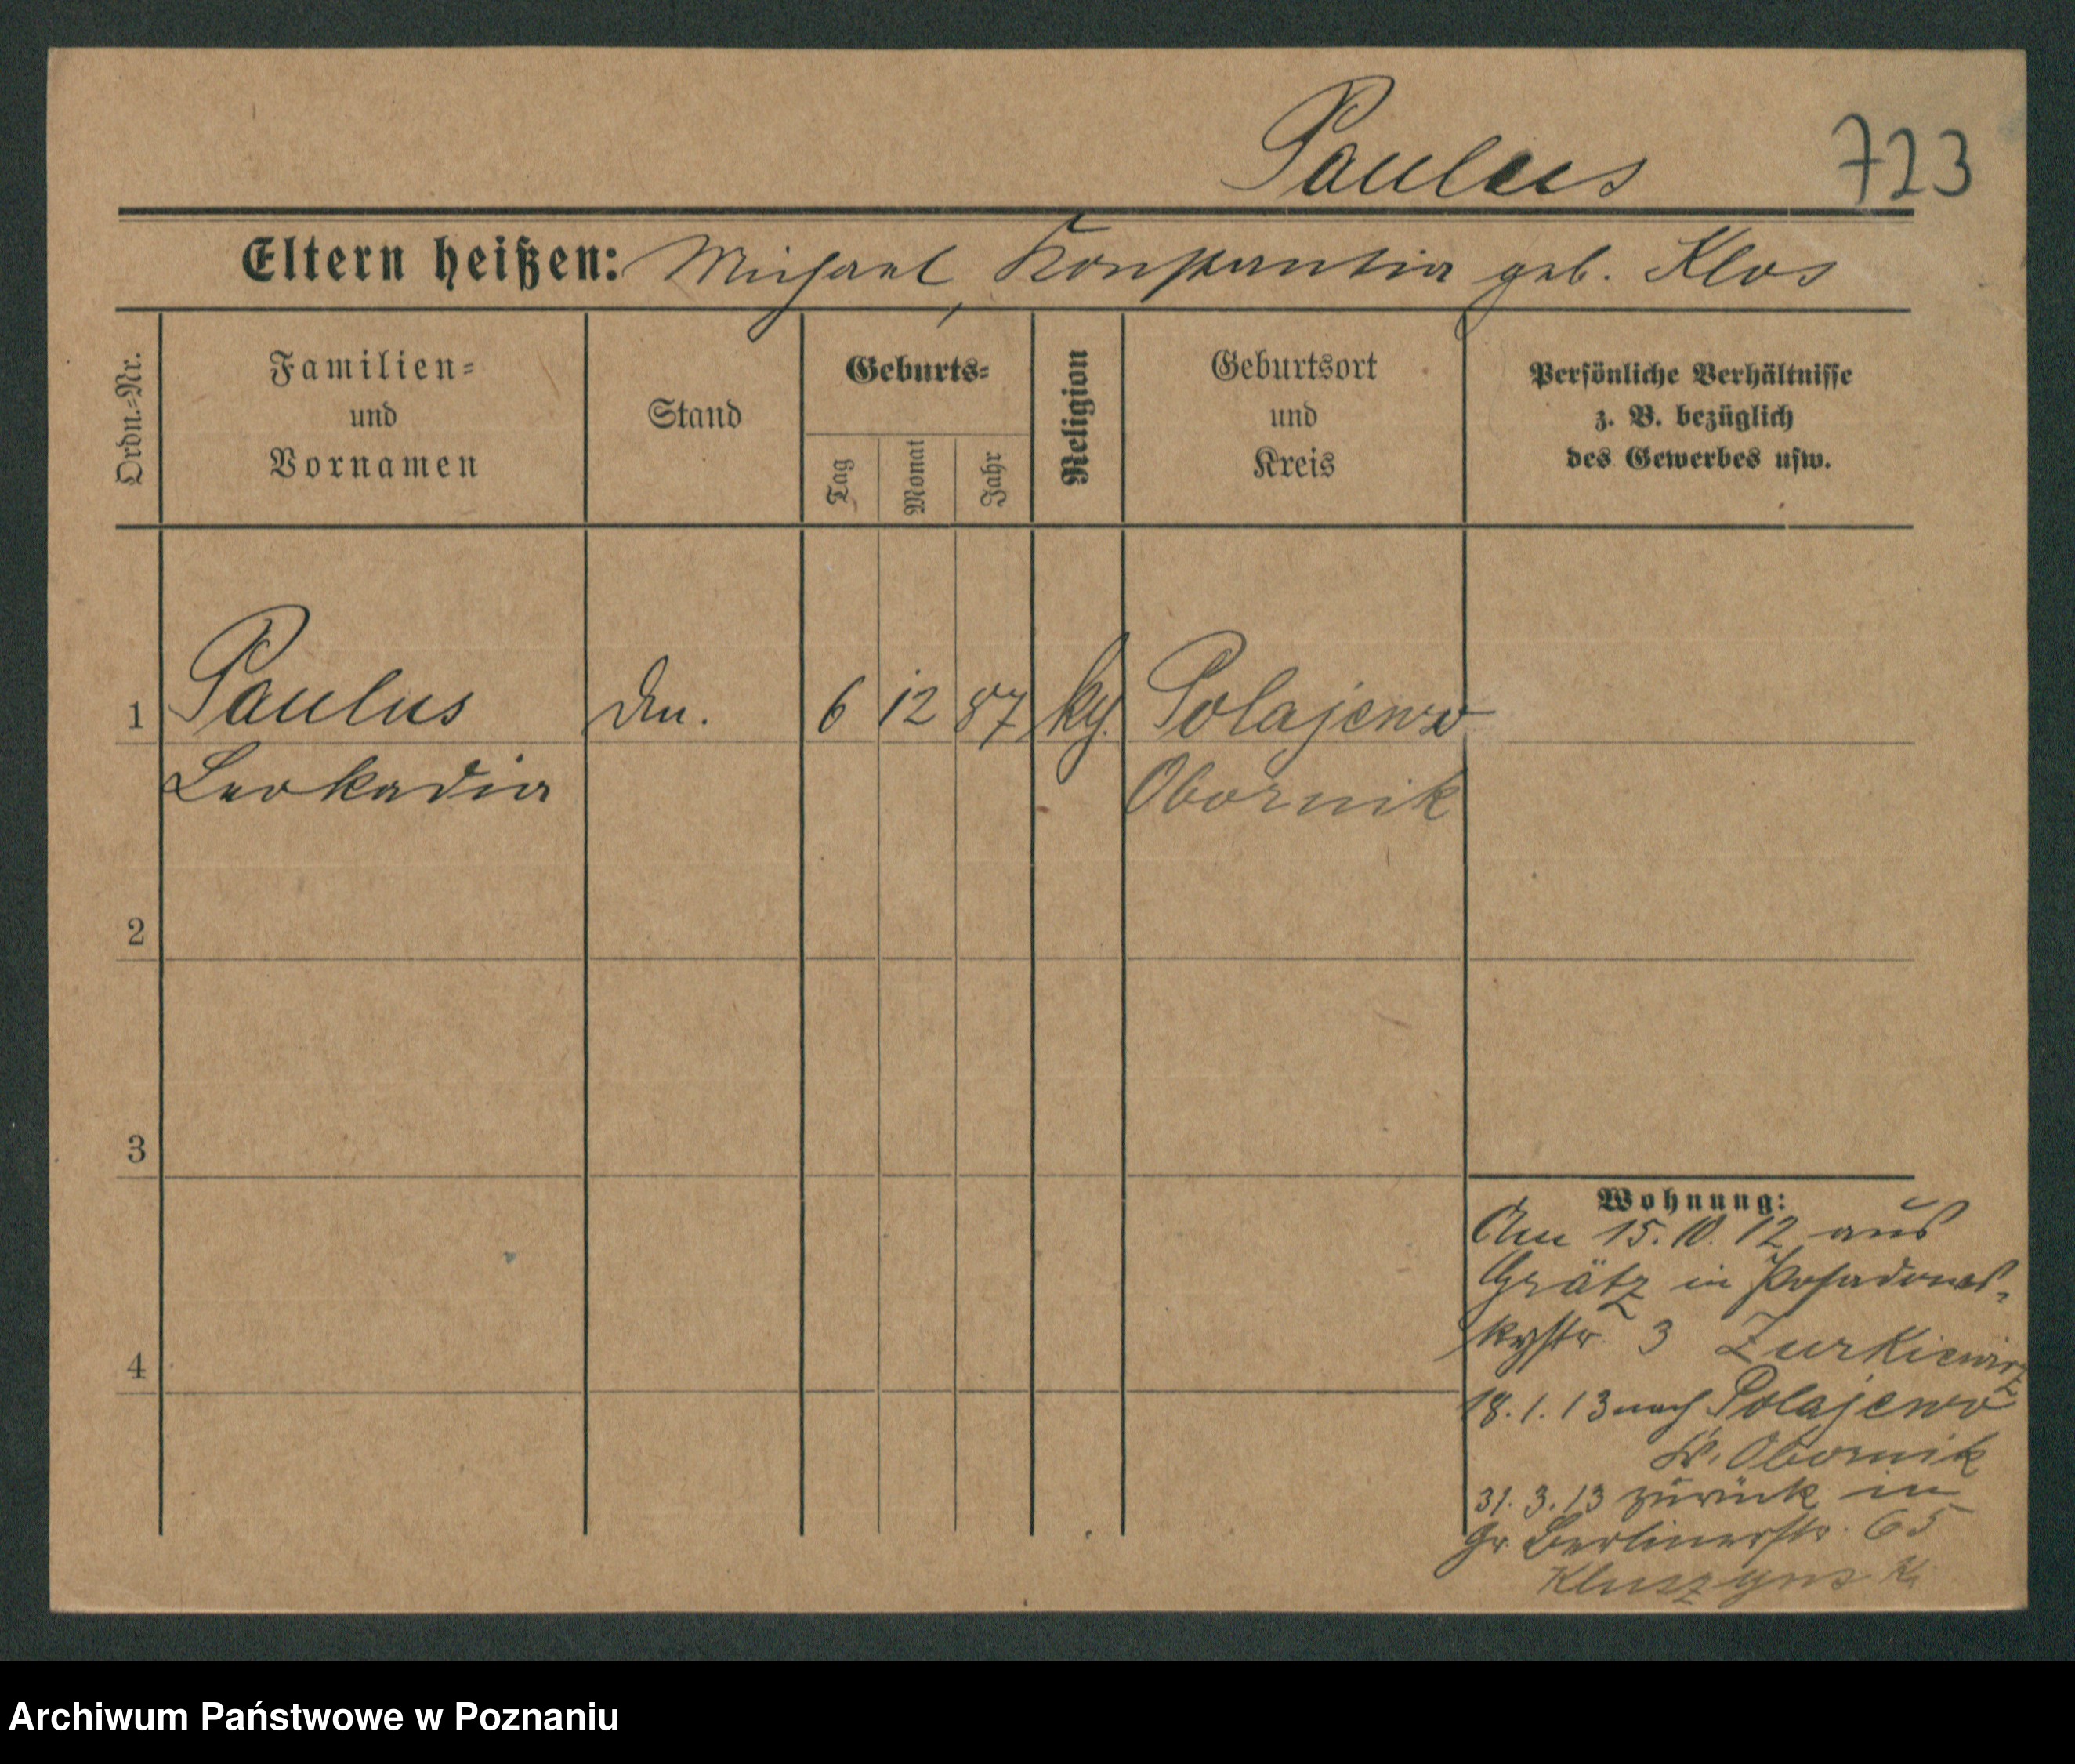 Paulus 723
Eltern heißen: Michael, Konstantia geb. Klos
Ordn.=Nr.
Familien=
und
Vornamen
Stand
Geburts=
Tag
Monat
Jahr
Religion
Geburtsort
und
Kreis
Persönliche Verhältnisse
z. B. bezüglich
des Gewerbes usw.
1 Paulus 6 12 87 Polajewo
Leokadia Obornik
2
3
4
Wohnung:
Am 15.10.12 aus
Grätz in Posadows-
kystr 3 Zurkiewicz
18.1.13 nach Polajewo
Kr. Obornik
31.3.13 zurück in
Gr. Berlinerstr. 65
Archiwum Państwowe w Poznaniu